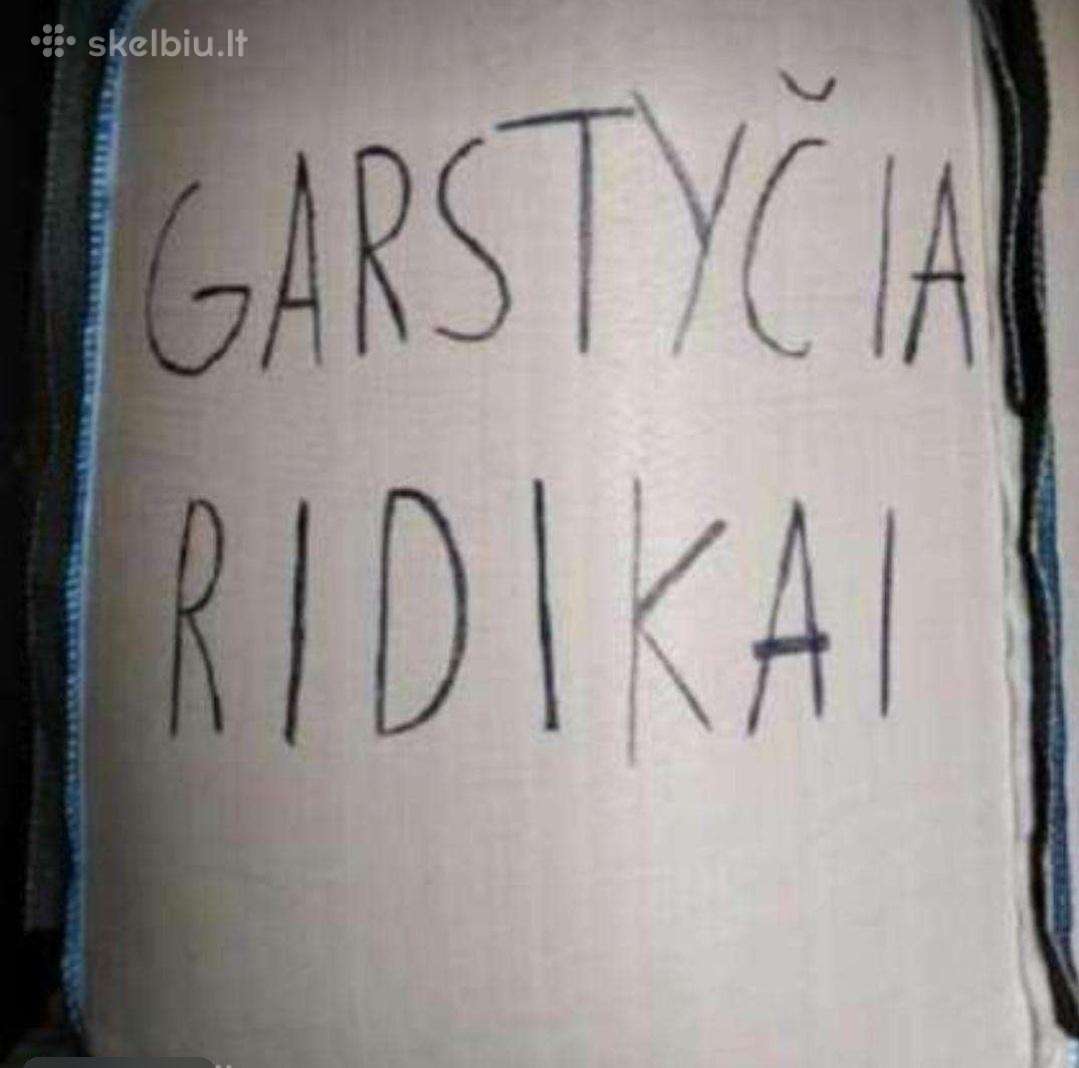 skelbiu.lt
GARSTYČIA
RIDIKAI